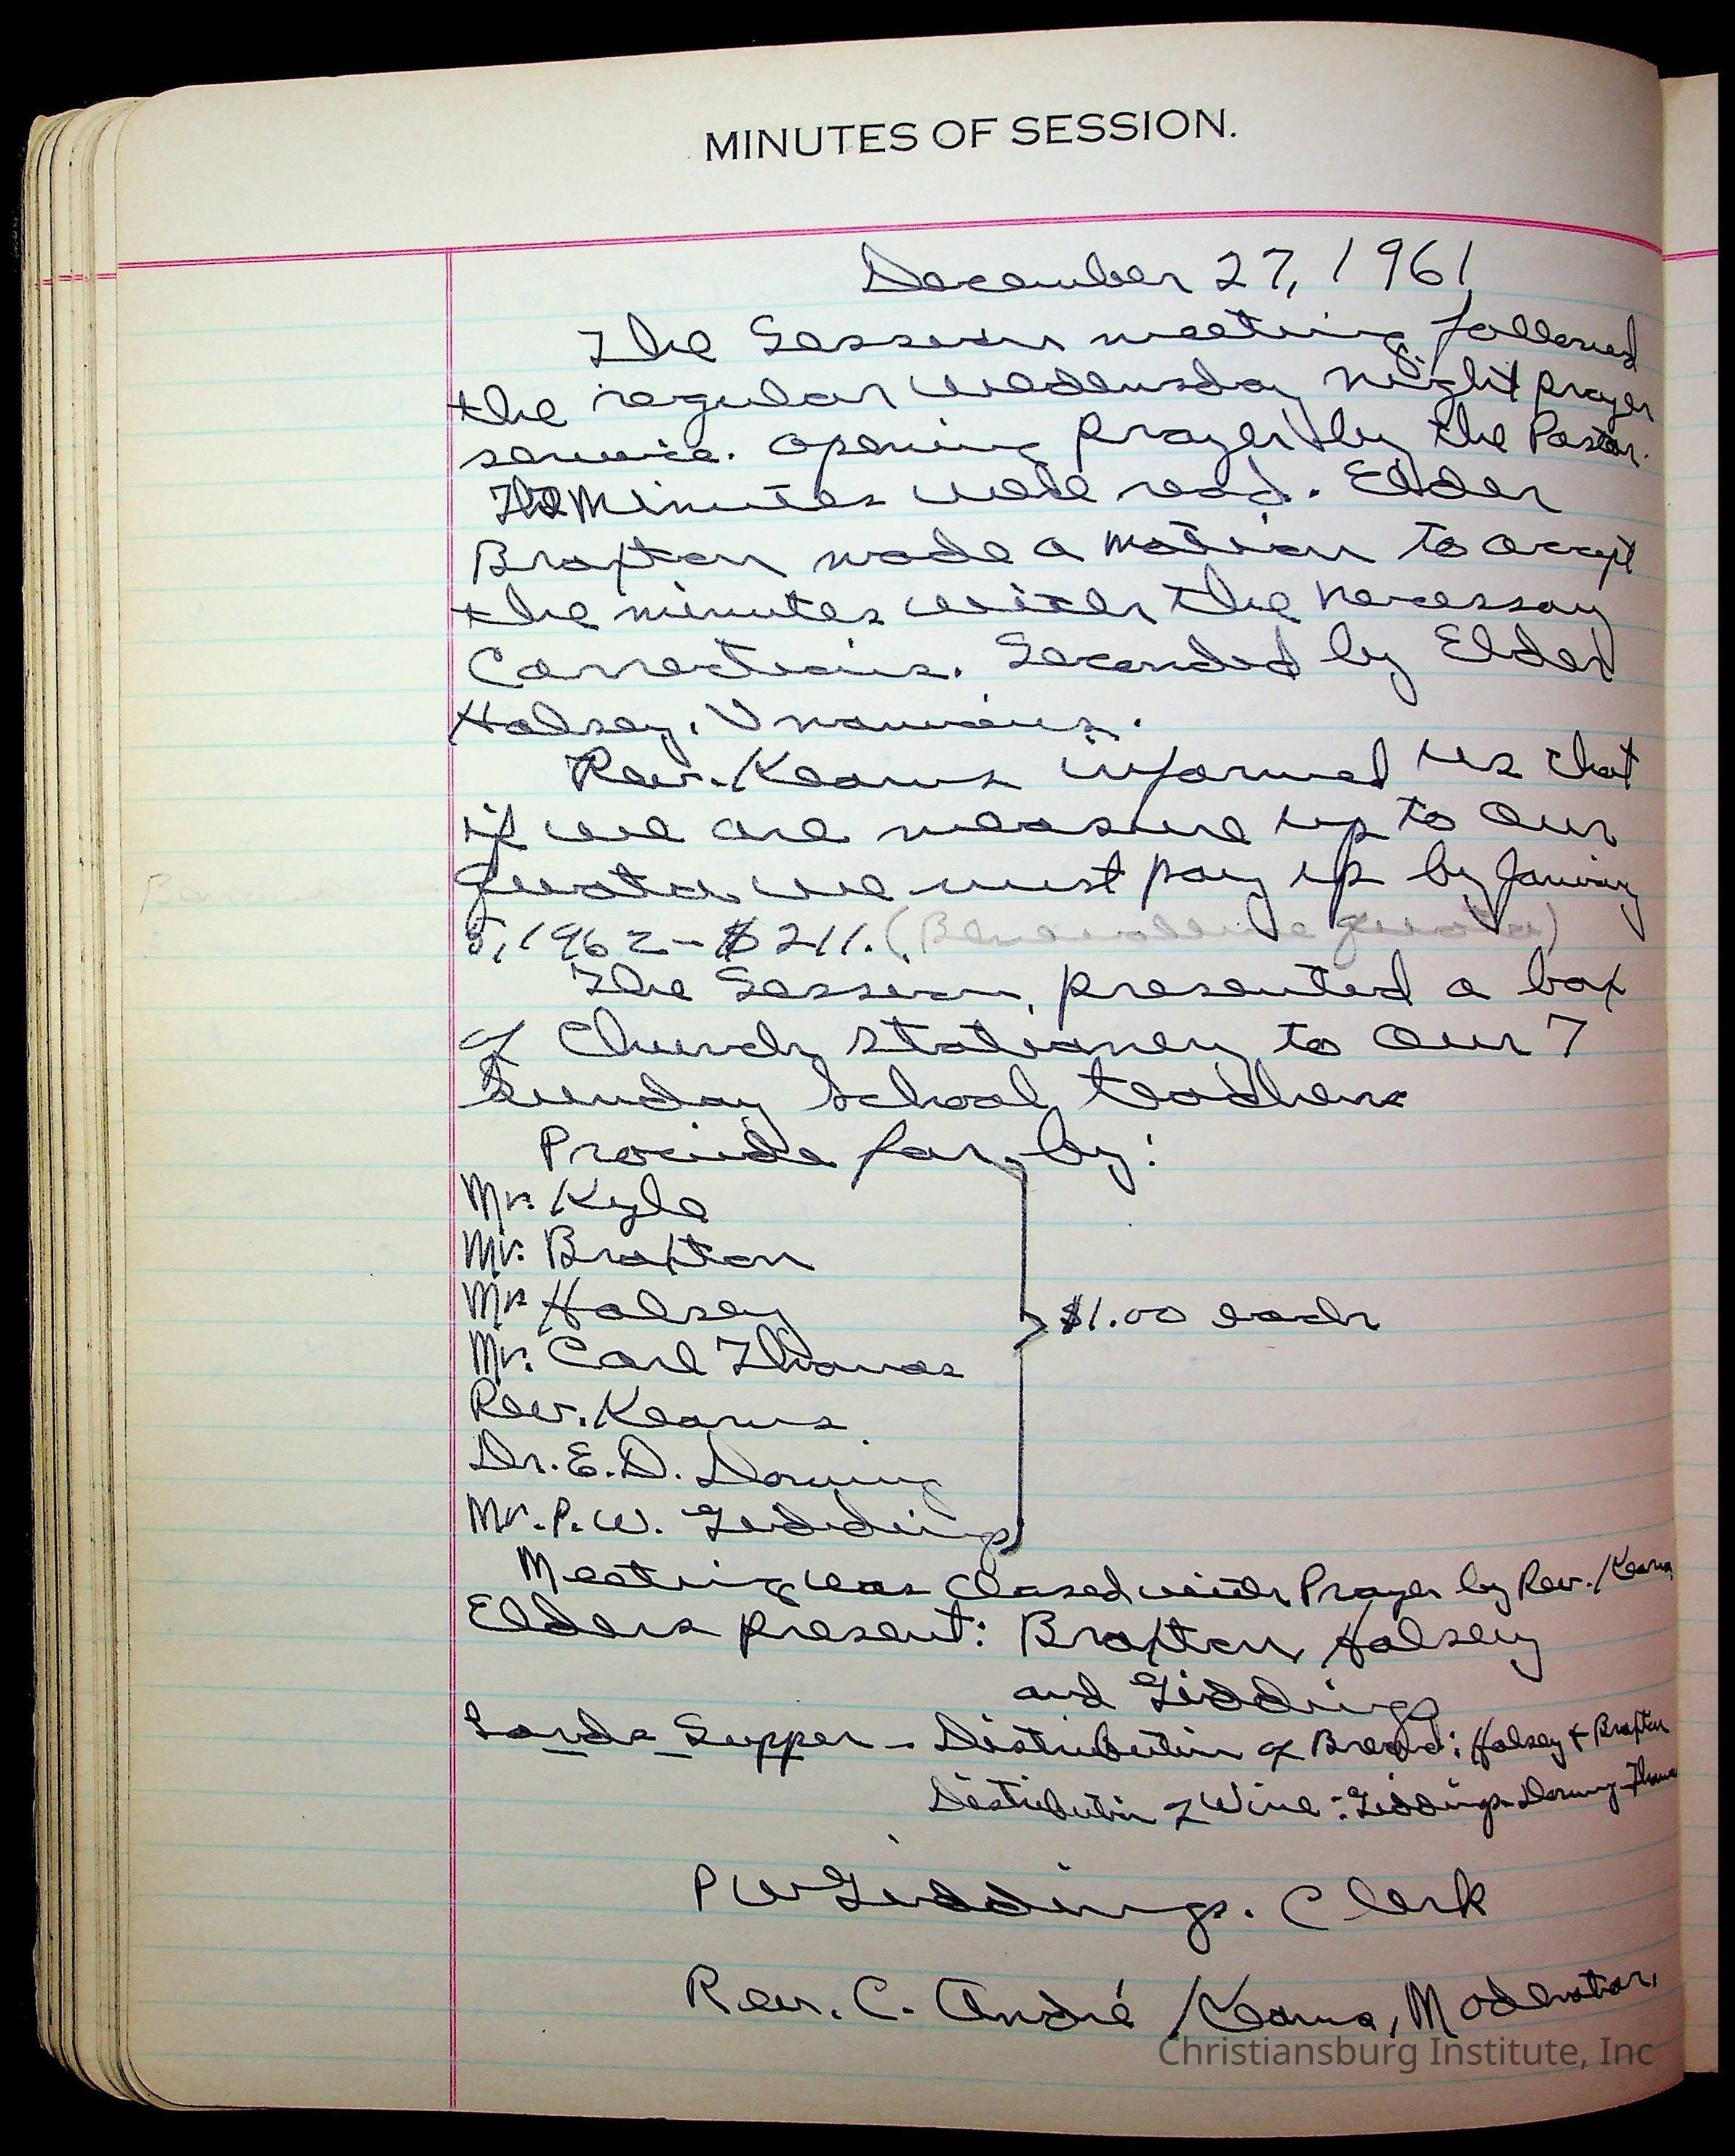 MINUTES OF SESSION.
December 27, 1961
The Session meeting followed
the regular Wednesday night prayer
service. Opening prayer by the Pastor.
The Minutes were read. Elder
Braxton made a motion to accept
the minutes with the necessary
Corrections. Seconded by Elder
Halsey. Unanimous.
Rev. Kearns informed us that
if we are measure up to our
quota we must pay up by January
5, 1962 - $211. (Benevolence quota)
The Session, presented a box
of Church stationery to our 7
Sunday School teachers
Provide for, by:
Mr. Kyle
Mr. Braxton
Mr. Halsey
$1.00 each
Mr. Carl Thomas
Rev. Kearns
Dr. E. D. Downing
Mr. P. W. Giddings
Meeting was Closed with Prayer by Rev. Kearns
Elders present: Braxton, Halsey
and Giddings
Lords Supper - Distribution of Bread: Halsey & Braxton
Distributin of Wine: Giddings - Downing - Thomas
P W Giddings. Clerk
Rev. C. André Kearns, Moderator.
Christiansburg Institute, Inc